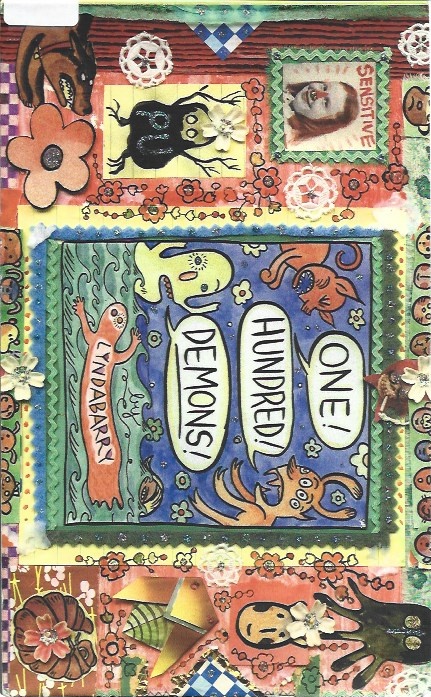 SENSITIVE
ONE!
HUNDRED!
DEMONS!
by
LYNDA BARRY